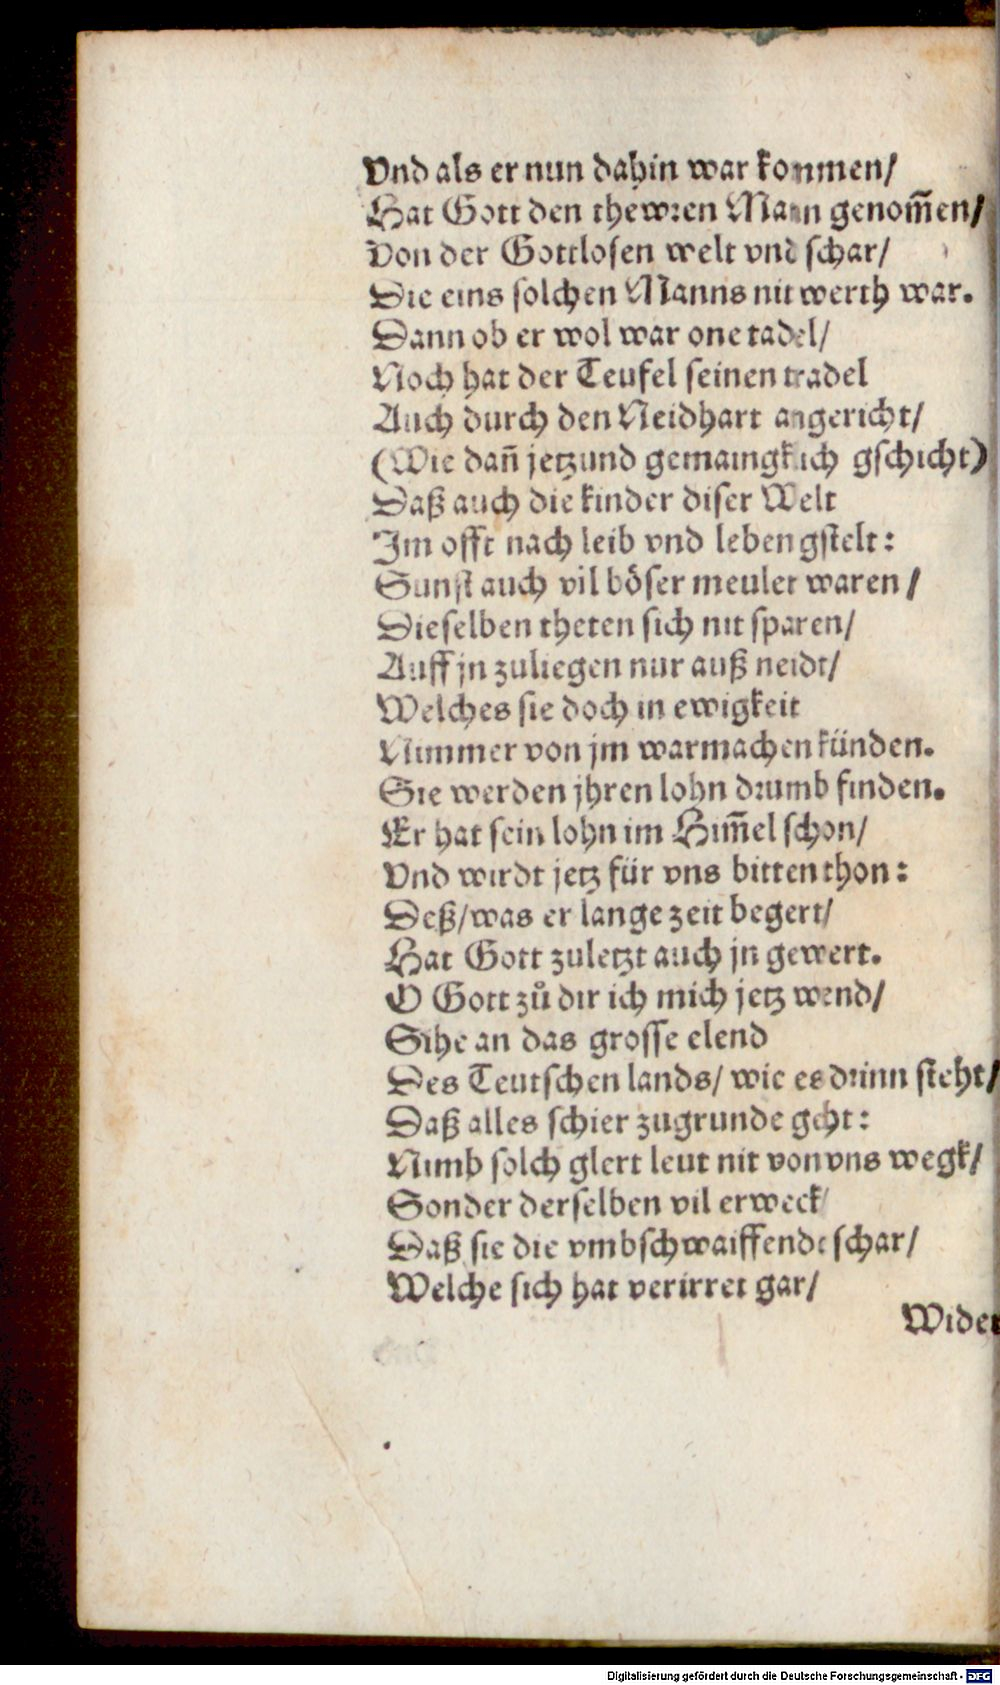 Vnd als er nun dahin war kommen/
Hat Gott den thewren Mann genom̄en/
Von der Gottlosen welt vnd schar/
Die eins solchen Manns nit werth war.
Dann ob er wol war one tadel/
Noch hat der Teufel seinen tradel
Auch durch den Neidhart angericht/
(Wie dañ jetzund gemaingklich gschicht)
Daß auch die kinder diser Welt
Im offt nach leib vnd leben gstelt:
Sunst auch vil böser meuler waren/
Dieselben theten sich nit sparen/
Auff jn zuliegen nur auß neidt/
Welches sie doch in ewigkeit
Nimmer von jm war machen künden.
Sie werden jhren lohn drumb finden.
Er hat sein lohn im Him̄el schon/
Vnd wirdt jetz für vns bitten thon:
Deß/was er lange zeit begert/
Hat Gott zuletzt auch jn gewert.
O Gott zů dir ich mich jetz wend/
Sihe an das grosse elend
Des Teutschen lands/ wie es drinn steht/
Daß alles schier zugrunde geht:
Nimb solch glert leut nit von vns wegk/
Sonder derselben vil erweck/
Daß sie die vmbschwaiffende schar/
Welche sich hat verirret gar/
Wider
Digitalisierung gefördert durch die Deutsche Forschungsgemeinschaft - DFG